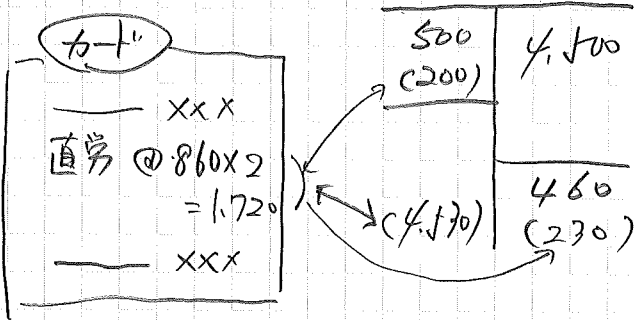 カード
—— xxx
直労 @860×2
=1.720
—— xxx
500
(200)
4.500
(4.530)
460
(230)